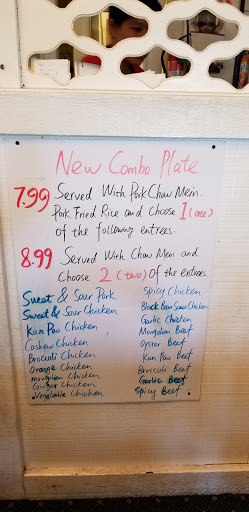 New Combo Plate
7.99 Served With Pork Chow Mein.
Pork Fried Rice and Choose 1 (one)
of the following entrees.
8.99 Served With Chow Mein and
Choose 2 (two) of the entrees
Sweat & Sour Pork
Sweat & Sour Chicken
Kun Pao Chicken
Cashew Chicken
Brocoli Chicken
Orange Chicken
Mongolian Chicken
Ginger Chicken
Vegetable Chicken
Spicy Chicken
Black Bean Sauce Chicken
Garlic Chicken
Mongolian Beef
Oyster Beef
Kun Pao Beef
Broccoli Beef
Garlic Beef
Spicy Beef